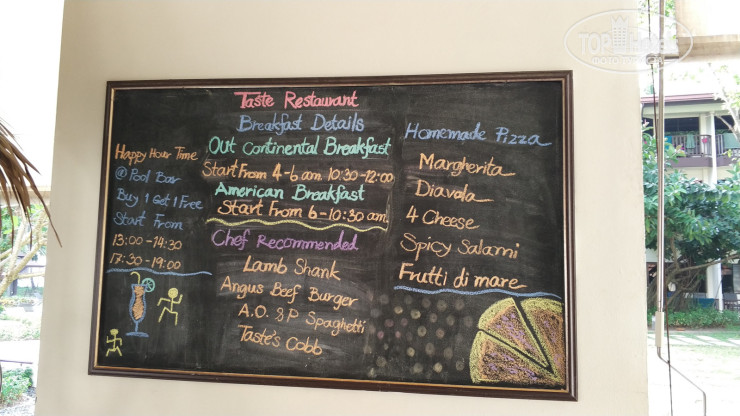 Taste Restaurant
Breakfast Details
Out Continental Breakfast
Start From 4-6 am. 10:30-12:00
American Breakfast
Start From 6-10:30 am.
Chef Recommended
Lamb Shank
Angus Beef Burger
A.O. & P Spaghetti
Taste's Cobb
Happy Hour Time
@ Pool Bar
Buy 1 Get 1 Free
Start From
13:00-14:30
17:30-19:00
Homemade Pizza
Margherita
Diavola
4 Cheese
Spicy Salami
Frutti di mare